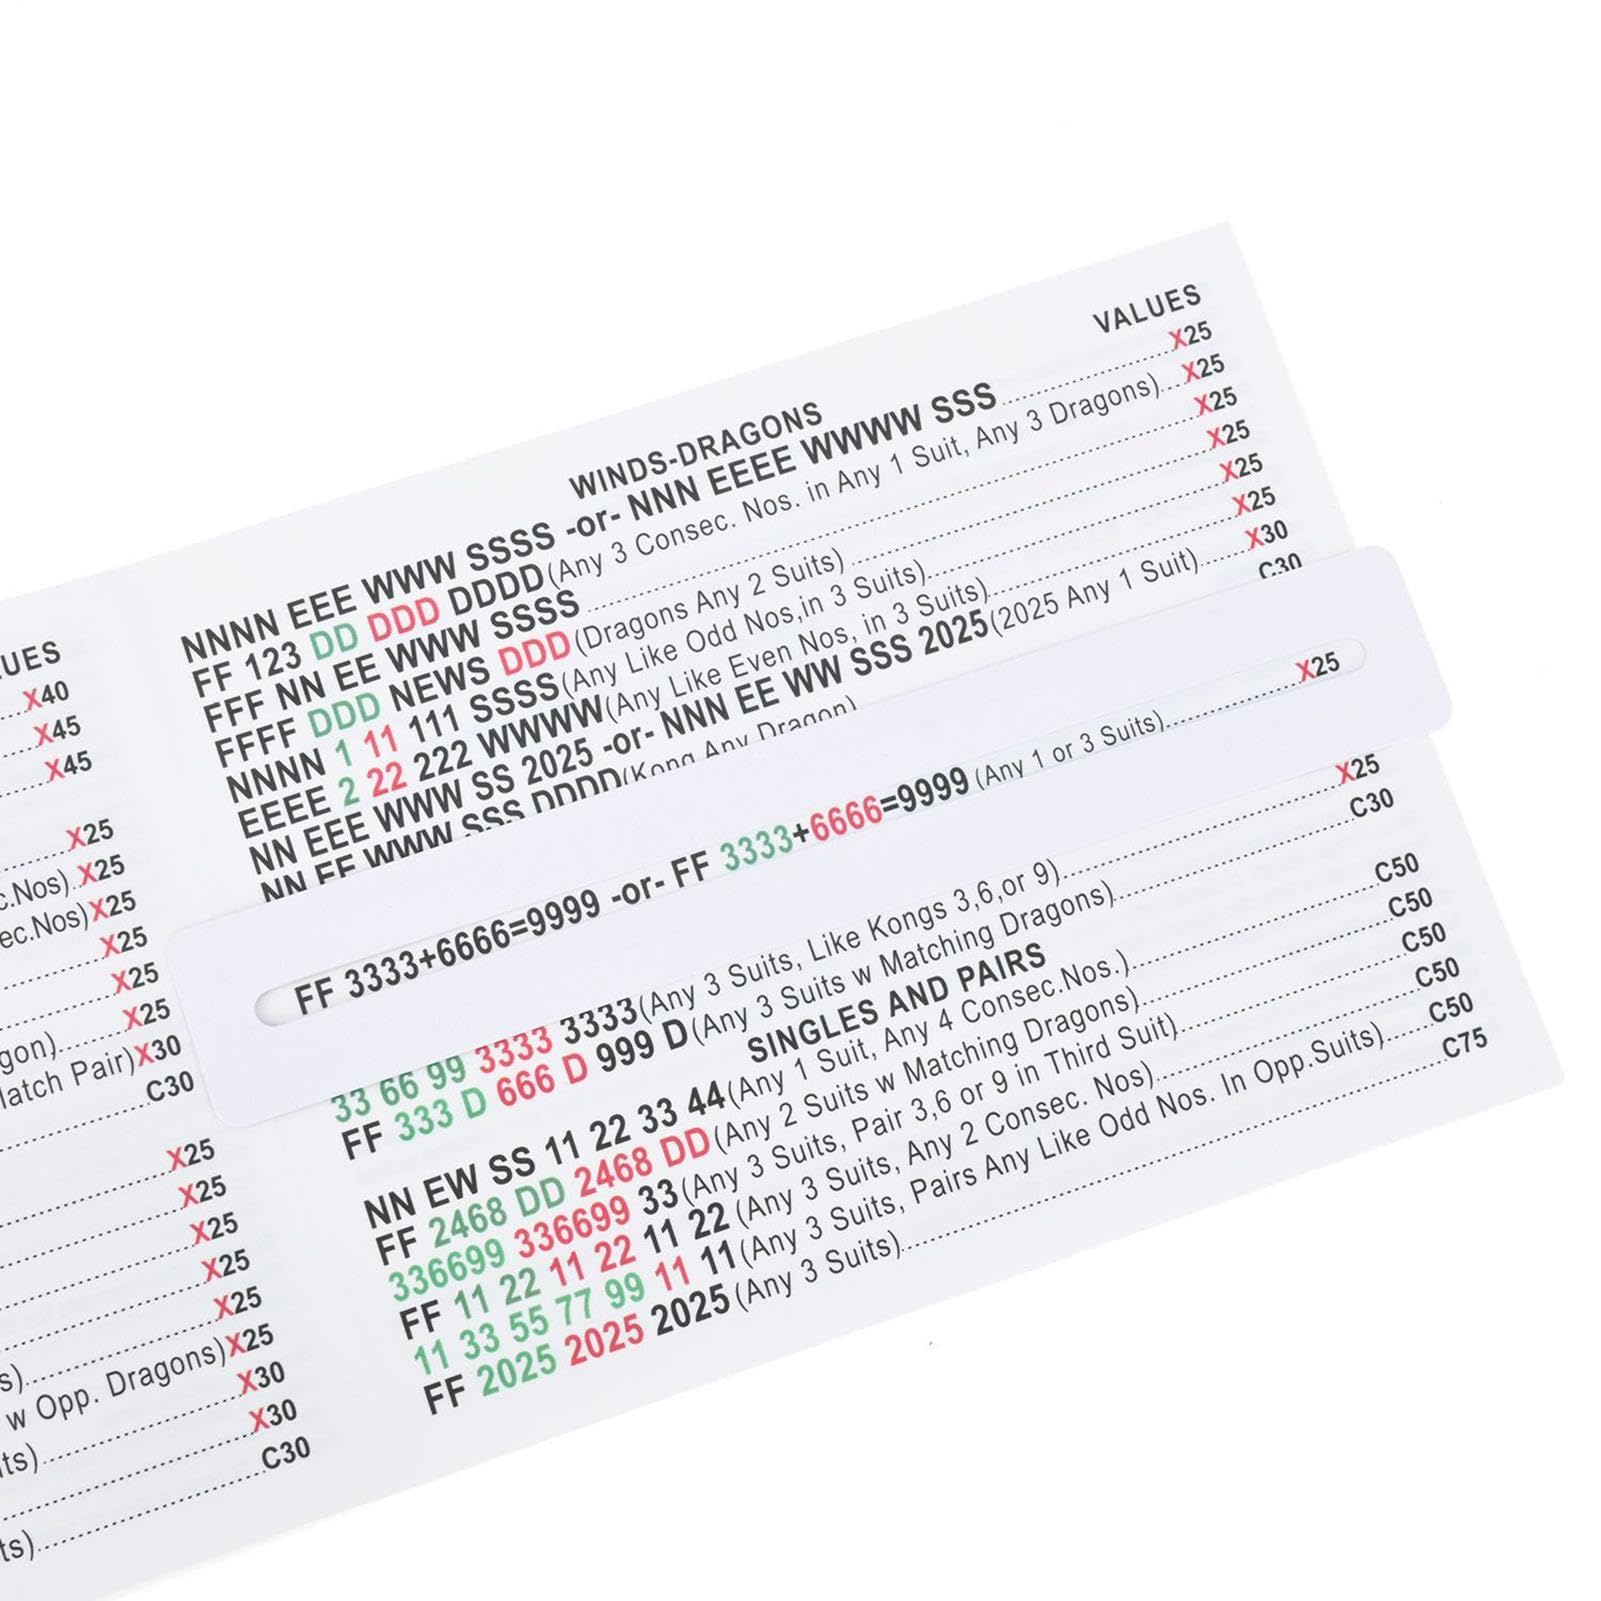 UES
X40
X45
X45
X25
c.Nos) X25
ec.Nos)X25
X25
X25
X25
gon)
latch Pair)X30
C30
X25
X25
X25
X25
X25
s)
w Opp. Dragons)X25
X30
ts)
X30
C30
ts)
WINDS-DRAGONS VALUES
NNNN EEE WWW SSSS -or- NNN EEEE WWWW SSS X25
FF 123 DD DDD DDDD (Any 3 Consec. Nos. in Any 1 Suit, Any 3 Dragons) X25
FFF NN EE WWW SSSS X25
FFFF DDD NEWS DDD (Dragons Any 2 Suits) X25
NNNN 1 11 111 SSSS (Any Like Odd Nos,in 3 Suits) X25
EEEE 2 22 222 WWWW (Any Like Even Nos, in 3 Suits) X25
NN EEE WWW SS 2025 -or- NNN EE WW SSS 2025 (2025 Any 1 Suit) X30
NN EE WWW SSS DDDD (Kong Any Dragon) C30
FF 3333+6666=9999 -or- FF 3333+6666=9999 (Any 1 or 3 Suits) X25
33 66 99 3333 3333 (Any 3 Suits, Like Kongs 3,6,or 9) X25
FF 333 D 666 D 999 D (Any 3 Suits w Matching Dragons) C30
SINGLES AND PAIRS
NN EW SS 11 22 33 44 (Any 1 Suit, Any 4 Consec.Nos.) C50
FF 2468 DD 2468 DD (Any 2 Suits w Matching Dragons) C50
336699 336699 33 (Any 3 Suits, Pair 3,6 or 9 in Third Suit) C50
FF 11 22 11 22 11 22 (Any 3 Suits, Any 2 Consec. Nos) C50
11 33 55 77 99 11 11 (Any 3 Suits, Pairs Any Like Odd Nos. In Opp.Suits) C50
FF 2025 2025 2025 (Any 3 Suits) C75